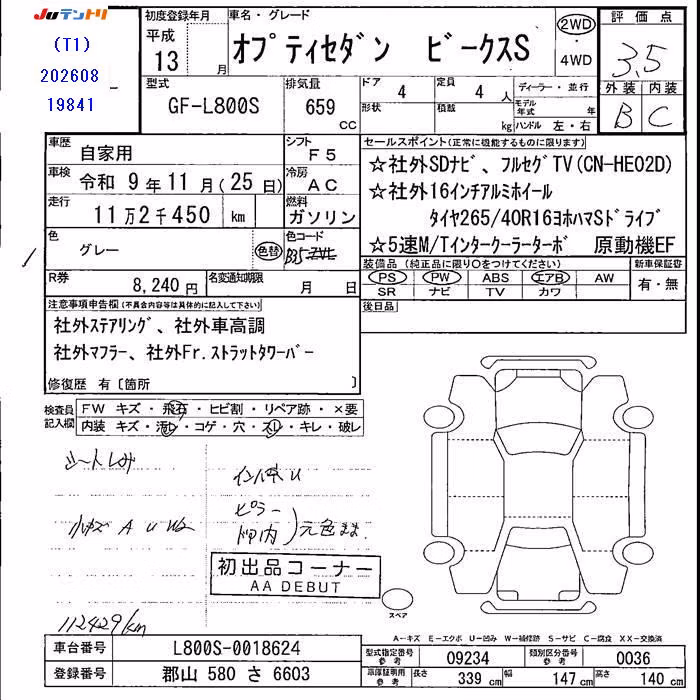 JUテントリ
(T1)
202608
19841
初度登録年月
平成
13 月
車名・グレード
オプティセダン ビークスS
2WD
・
4WD
評価点
3.5
型式
GF-L800S
排気量
659 CC
ドア 4
形状
定員 4 人
積載 kg
ディーラー・並行
モデル年式 年
ハンドル 左・右
外装 内装
B C
車歴 自家用
シフト F5
車検 令和 9年11月(25日)
冷房 AC
走行 11万2千450 km
燃料 ガソリン
色 グレー 色替
色コード
R券 8,240円
名変通知期限 月 日
セールスポイント(正常に機能するものに限ります)
☆社外SDナビ、フルセグTV(CN-HE02D)
☆社外16インチアルミホイール
タイヤ265/40R16ヨホハマSドライブ
☆5速M/Tインタークーラーターボ 原動機EF
装備品(純正品に限り○をつけてください)
PS PW ABS エアB AW
SR ナビ TV カワ
新車保証書
有・無
後日品
注意事項申告欄(不具合内容等は具体的に記入して下さい)
社外ステアリング、社外車高調
社外マフラー、社外Fr.ストラットタワーバー
修復歴 有〔箇所 〕
検査員記入欄
FW キズ・飛石・ヒビ割・リペア跡・×要
内装 キズ・汚レ・コゲ・穴・スレ・キレ・破レ
シートしみ
インパネU
小キズ A U W2
ピラー
ドア内
元色まま
初出品コーナー
AA DEBUT
112429km
スペア
A－キズ E－エクボ U－凹み W－補修跡 S－サビ C－腐食 XX－交換済
車台番号 L800S-0018624
登録番号 郡山 580 さ 6603
型式指定番号 参考 09234
類別区分番号 参考 0036
車庫証明用 参考 長さ 339 cm 幅 147 cm 高さ 140 cm